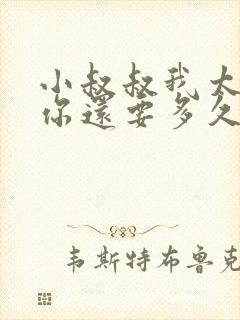 小叔叔我太
你還要多久
韦斯特布鲁克